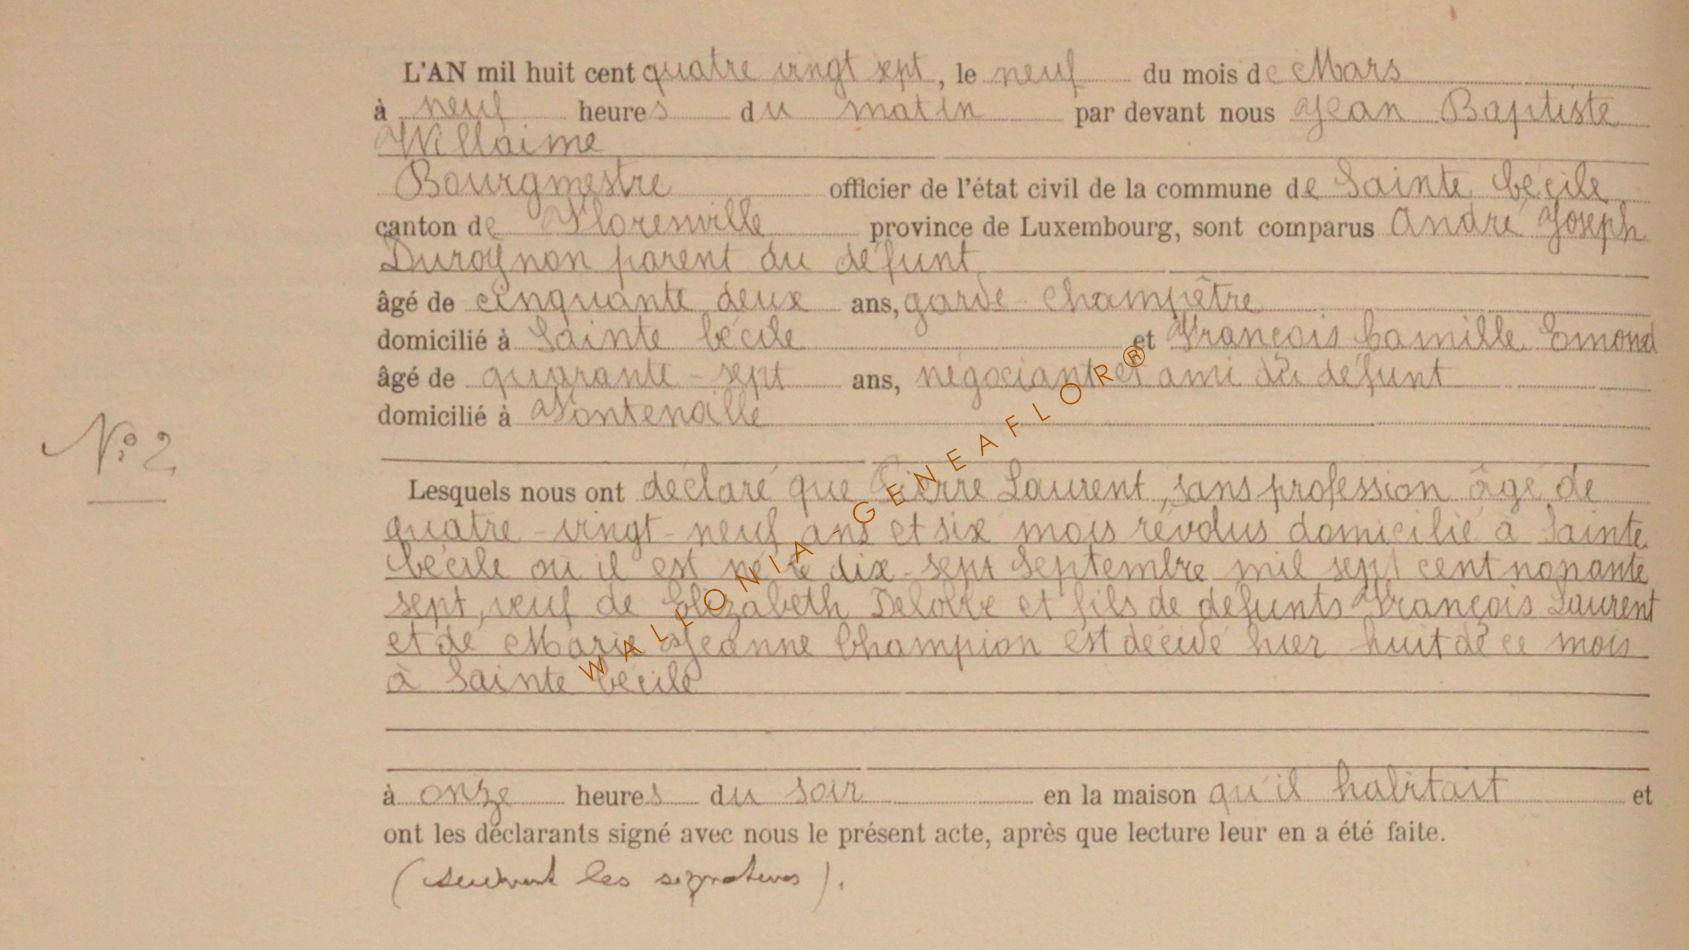 L'AN mil huit cent quatre vingt sept, le neuf du mois de Mars
à neuf heures du matin par devant nous Jean Baptiste
Willaime
Bourgmestre officier de l'état civil de la commune de Sainte Cécile
canton de Florenville province de Luxembourg, sont comparus André Joseph
Durognon parent du défunt
âgé de cinquante deux ans, garde-champêtre
domicilié à Sainte Cécile et François Camille Emond
âgé de quarante-sept ans, négociant et ami du défunt
domicilié à Fontenoille
N° 2
Lesquels nous ont déclaré que Pierre Laurent, sans profession âgé de
quatre-vingt-neuf ans et six mois révolus domicilié à Sainte
Cécile ou il est né le dix-sept Septembre mil sept cent nonante
sept, veuf de Elizabeth et fils de défunts François Laurent
et de Marie Jeanne Champion est décédé hier huit de ce mois
à Sainte Cécile
à onze heures du soir en la maison qu'il habitait et
ont les déclarants signé avec nous le présent acte, après que lecture leur en a été faite.
(suivent les signatures).
WALLONIA - GENEAFLOR®